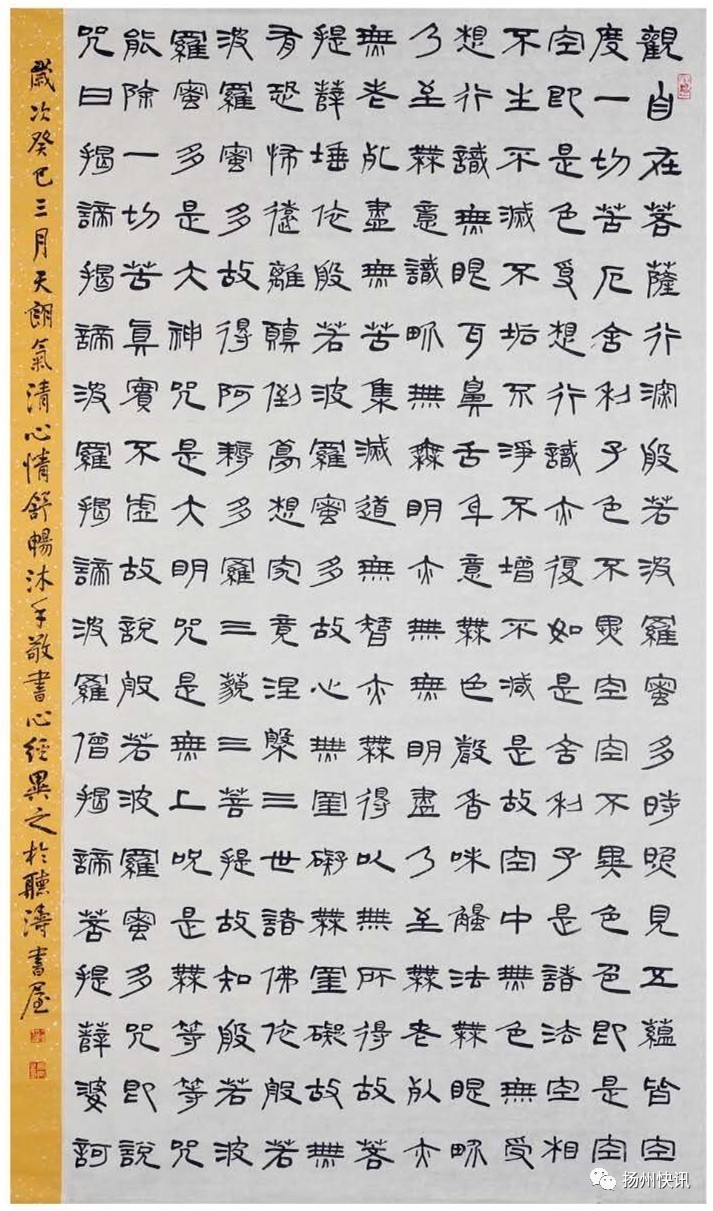 觀自在菩薩行深般若波羅蜜多時照見五蘊皆空
度一切苦厄舍利子色不異空空不異色色即是空
空即是色受想行識亦復如是舍利子是諸法空相
不生不滅不垢不淨不增不減是故空中無色無受
想行識無眼耳鼻舌身意無色聲香味觸法無眼界
乃至無意識界無無明亦無無明盡乃至無老死亦
無老死盡無苦集滅道無智亦無得以無所得故菩
提薩埵依般若波羅蜜多故心無罣礙無罣礙故無
有恐怖遠離顛倒夢想究竟涅槃三世諸佛依般若
波羅蜜多故得阿耨多羅三藐三菩提故知般若波
羅蜜多是大神咒是大明咒是無上咒是無等等咒
能除一切苦真實不虛故說般若波羅蜜多咒即說
咒曰揭諦揭諦波羅揭諦波羅僧揭諦菩提薩婆訶
歲次癸巳三月天朗氣清心情舒暢沐手敬書心經異之於聽濤書屋
扬州快讯